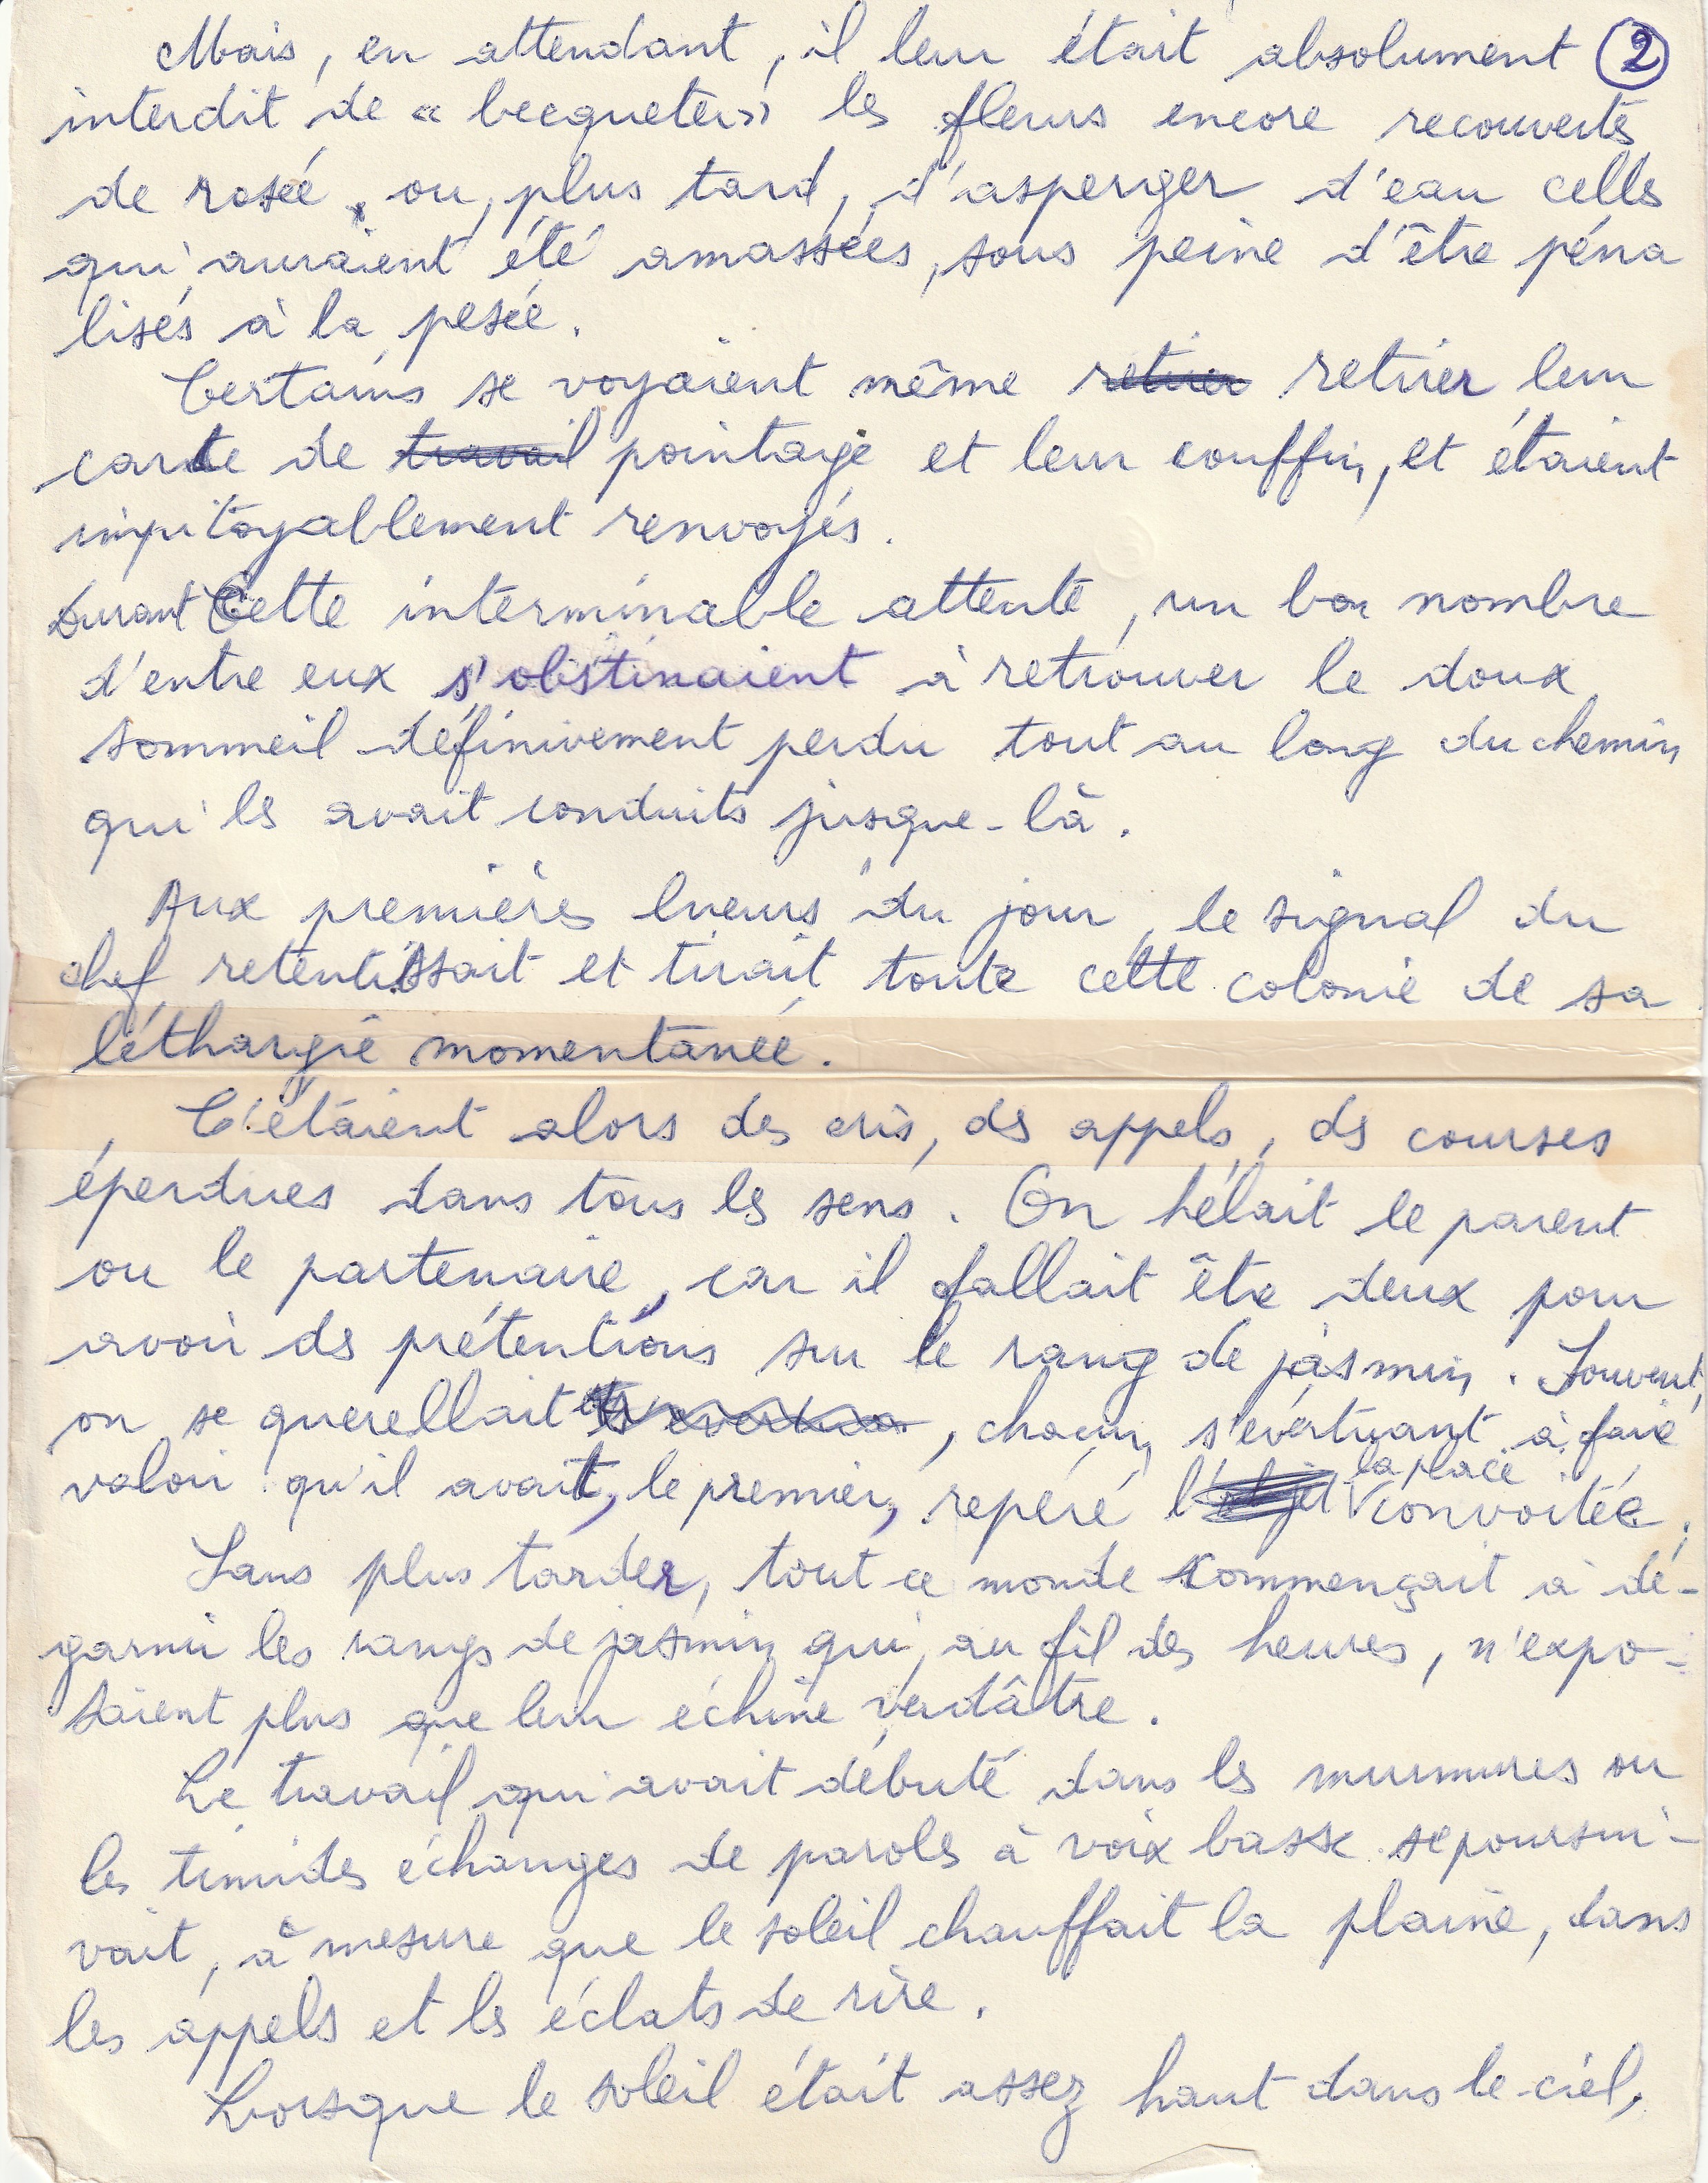 Mais, en attendant, il leur était absolument ②
interdit de « becqueter » les fleurs encore recouvertes
de rosée, ou, plus tard, d'asperger d'eau celles
qui auraient été amassées, sous peine d'être péna
lisés à la pesée.
Certains se voyaient même retirer retirer leur
carte de travail pointage et leur couffin, et étaient
impitoyablement renvoyés.
Durant Cette interminable attente, un bon nombre
d'entre eux s'obstinaient à retrouver le doux
sommeil définivement perdu tout au long du chemin
qui les avait conduits jusque-là.
Aux premières lueurs du jour, le signal du
chef retentissait et tirait toute cette colonie de sa
léthargie momentanée.
C'étaient alors des cris, des appels, des courses
éperdues dans tous les sens. On hélait le parent
ou le partenaire, car il fallait être deux pour
avoir des prétentions sur le rang de jasmin. Souvent,
on se querellait, chacun s'évertuant à faire
valoir qu'il avait, le premier, repéré la place convoitée.
Sans plus tarder, tout ce monde commençait à dé-
garnir les rangs de jasmin qui, au fil des heures, n'expo-
saient plus que leur échine verdâtre.
Le travail qui avait débuté dans les murmures ou
les timides échanges de paroles à voix basse se poursui-
vait, à mesure que le soleil chauffait la plaine, dans
les appels et les éclats de rire.
Lorsque le soleil était assez haut dans le ciel,